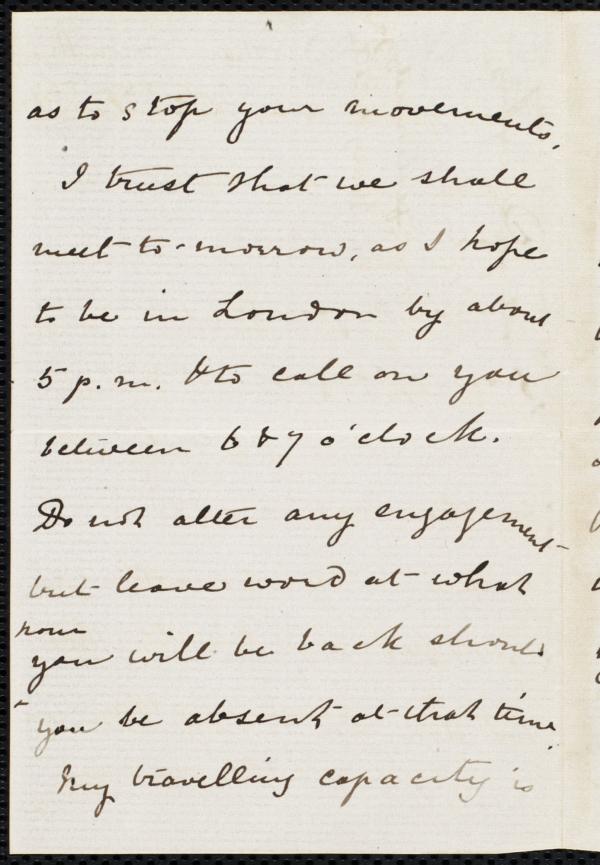 as to stop your movements.
I trust that we shall
meet to-morrow, as I hope
to be in London by about
5 p.m. & to call on you
between 6 & 7 o'clock.
Do not alter any engagement
but leave word at what
hour
you will be back should
you be absent at that time.
My travelling capacity is